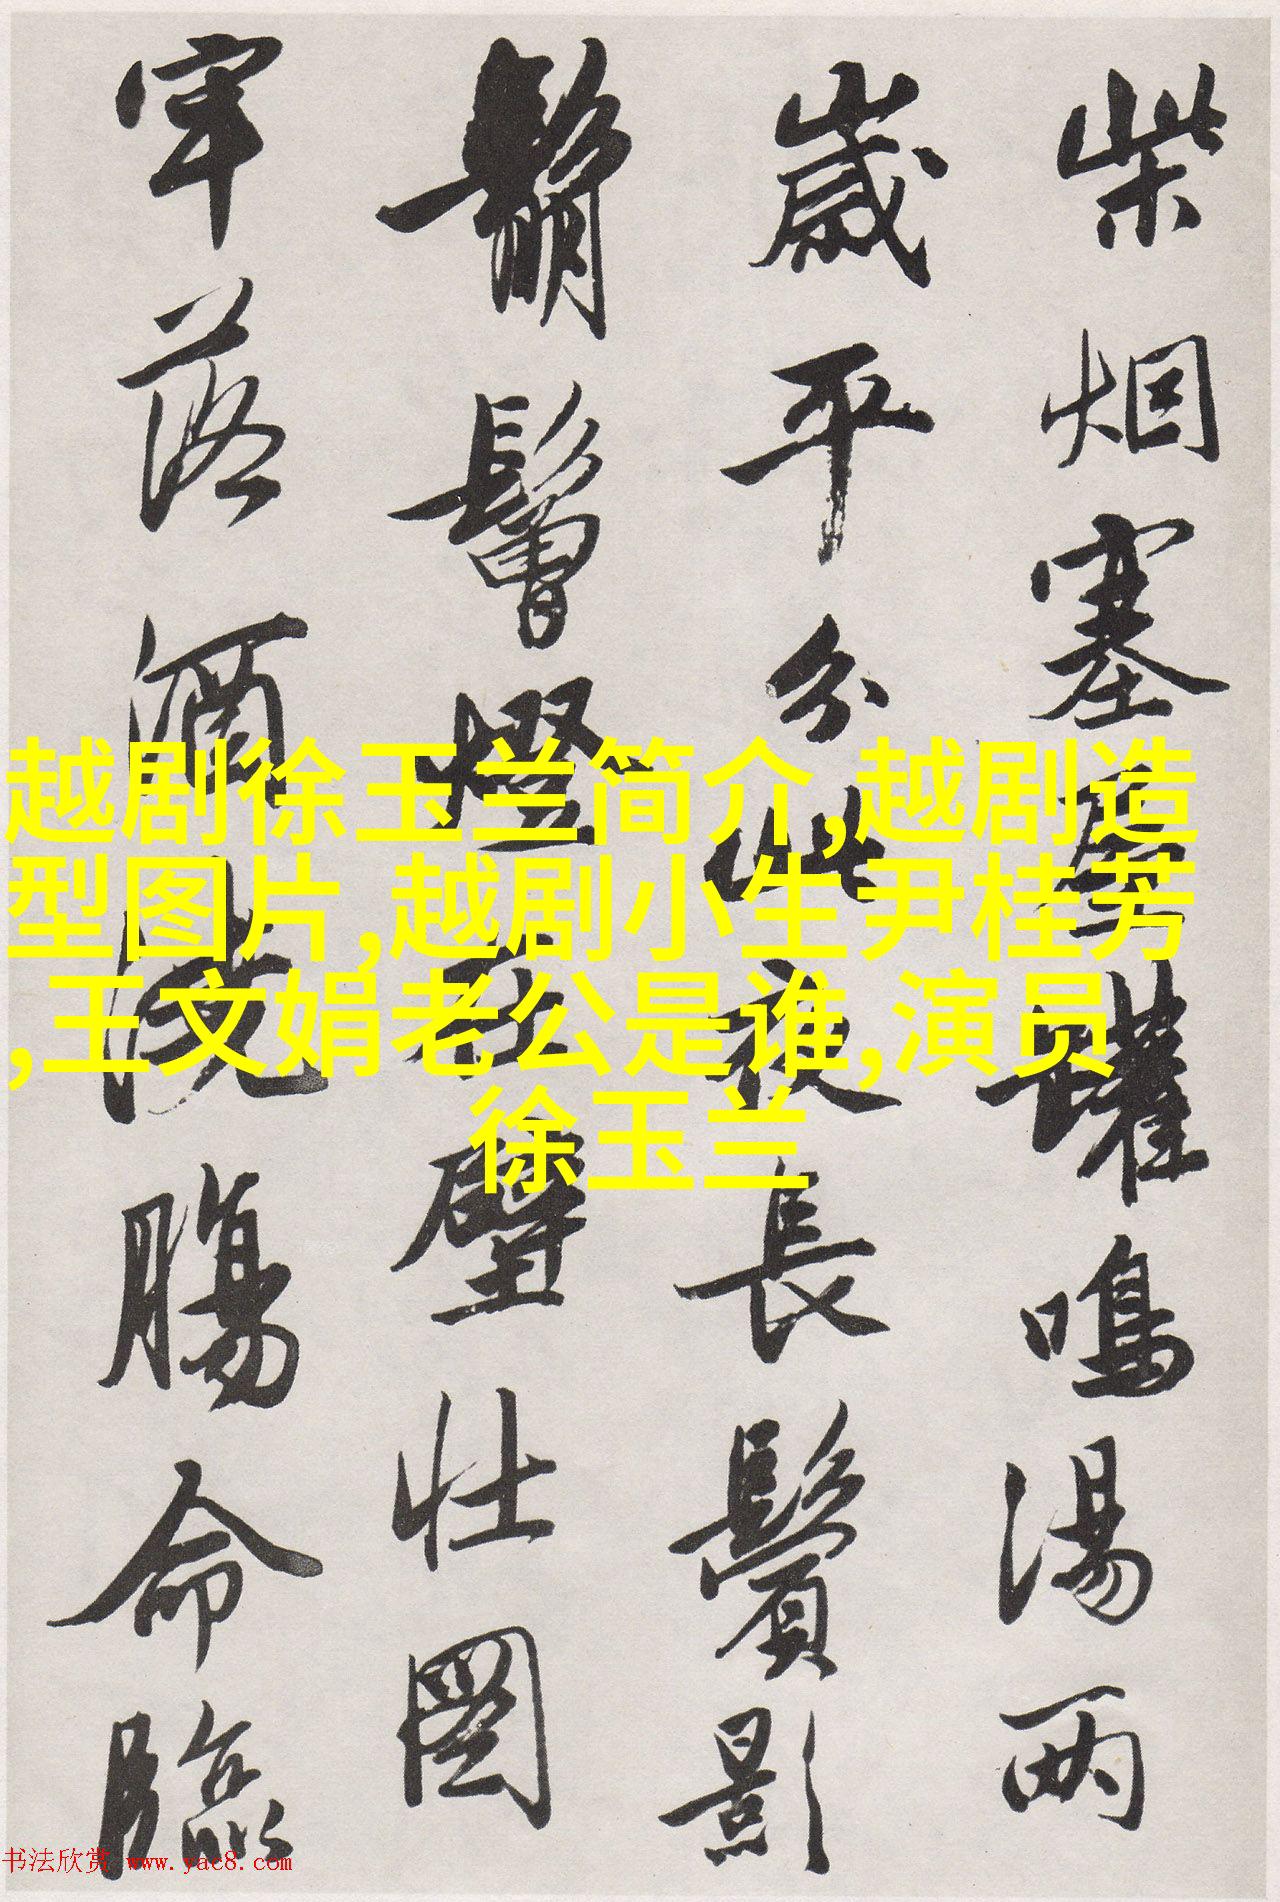 柴烟塞屋罐鳴湯兩
歲平分此夜長鬢影
鬅鬙燈在壁壯圖
牢落酒澆腸命臨
越剧徐玉兰简介,越剧造
型图片,越剧小生尹桂芳
,王文娟老公是谁,演员
徐玉兰
书法欣赏 www.yac8.com